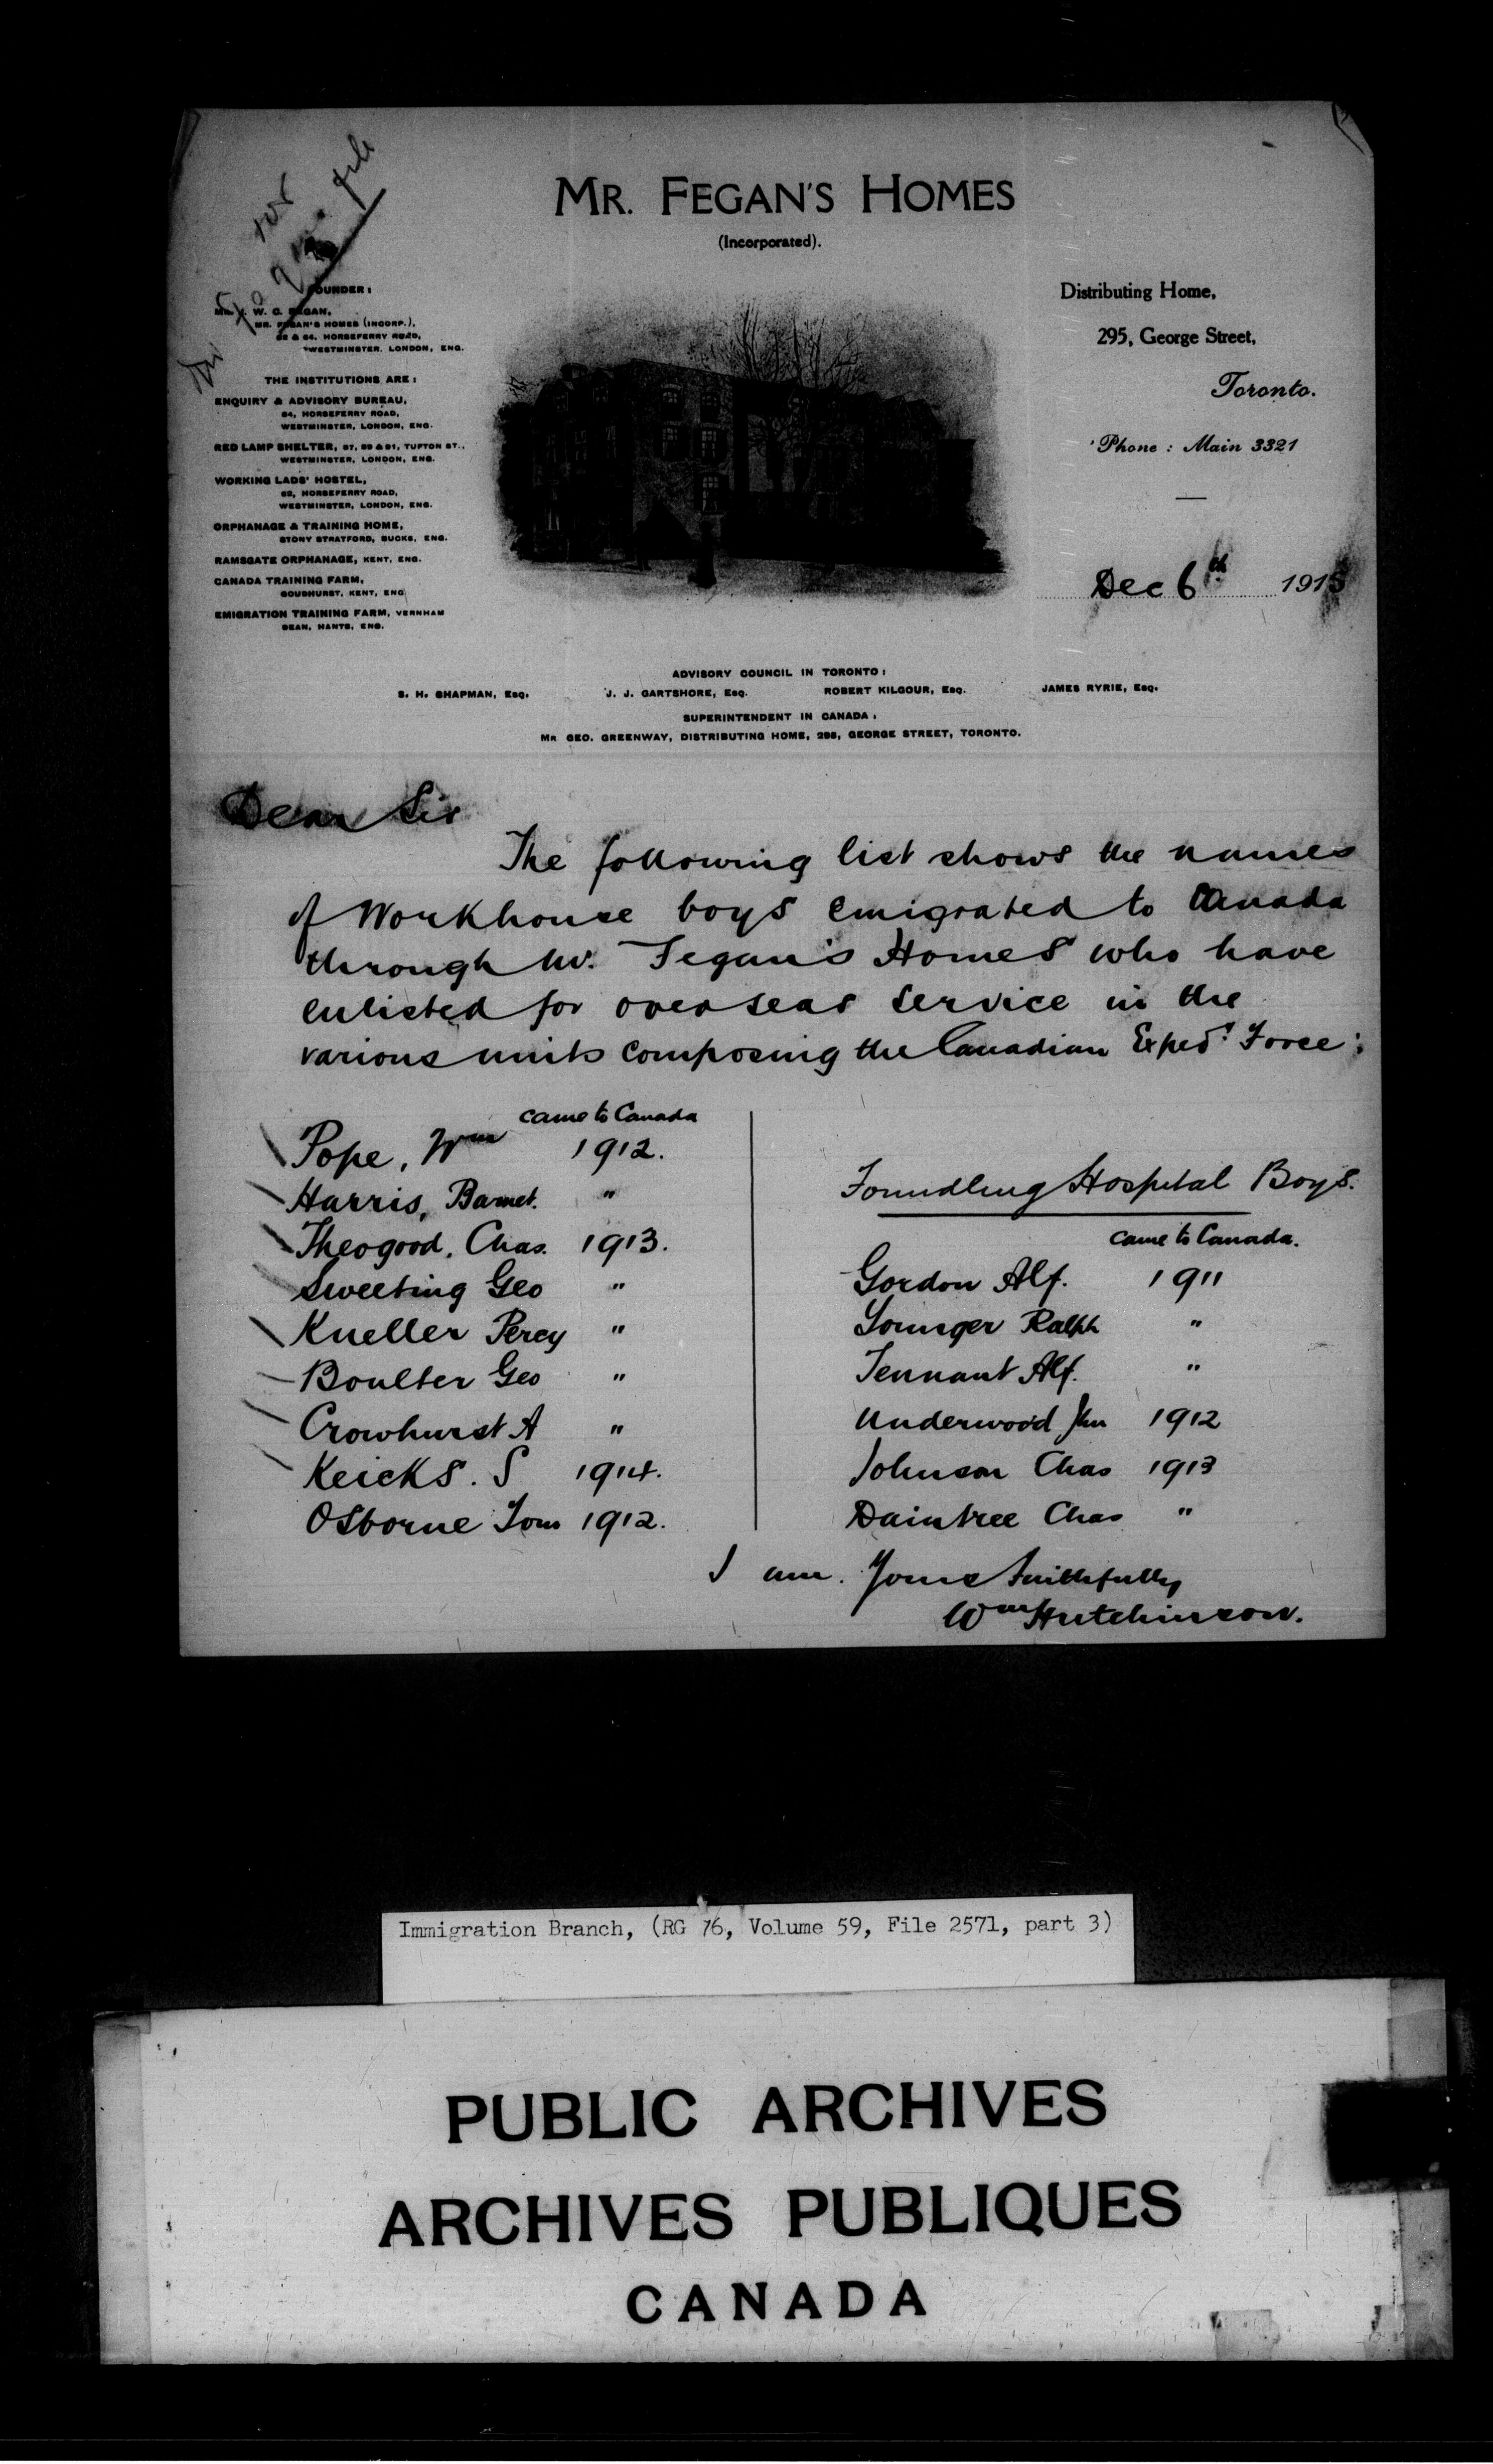 MR. FEGAN'S HOMES
(Incorporated).
FOUNDER:
MR. J. W. C. FEGAN,
MR. FEGAN'S HOMES (INCORP.),
62 & 64, HORSEFERRY ROAD,
WESTMINSTER, LONDON, ENG.
THE INSTITUTIONS ARE:
ENQUIRY & ADVISORY BUREAU,
64, HORSEFERRY ROAD,
WESTMINSTER, LONDON, ENG.
RED LAMP SHELTER, 87, 89 & 91, TUFTON ST.,
WESTMINSTER, LONDON, ENG.
WORKING LADS' HOSTEL,
62, HORSEFERRY ROAD,
WESTMINSTER, LONDON, ENG.
ORPHANAGE & TRAINING HOME,
STONY STRATFORD, BUCKS, ENG.
RAMSGATE ORPHANAGE, KENT, ENG.
CANADA TRAINING FARM,
GOUDHURST, KENT, ENG
EMIGRATION TRAINING FARM, VERNHAM
DEAN, HANTS, ENG.
Distributing Home,
295, George Street,
Toronto.
'Phone: Main 3321
Dec 6th 1915
ADVISORY COUNCIL IN TORONTO:
S. H. CHAPMAN, Esq. J. J. GARTSHORE, Esq. ROBERT KILGOUR, Esq. JAMES RYRIE, Esq.
SUPERINTENDENT IN CANADA:
Mr GEO. GREENWAY, DISTRIBUTING HOME, 295, GEORGE STREET, TORONTO.
Dear Sir
The following list shows the names
of Workhouse boys emigrated to Canada
through Mr. Fegan's Homes who have
enlisted for overseas service in the
various units composing the Canadian Exped? Force:
came to Canada
Pope, Wm 1912.
Harris, Barnet. "
Theogood, Chas. 1913.
Sweeting Geo "
Kneller Percy "
Boulter Geo "
Crowhurst A "
Keicks. S 1914.
Osborne Tom 1912.
Foundling Hospital Boys.
came to Canada.
Gordon Alf. 1911
Younger Ralph "
Tennant Alf. "
Underwood Jhn 1912
Johnson Chas 1913
Daintree Chas "
I am. Yours faithfully
Wm Hutchinson.
Immigration Branch, (RG 76, Volume 59, File 2571, part 3)
PUBLIC ARCHIVES
ARCHIVES PUBLIQUES
CANADA